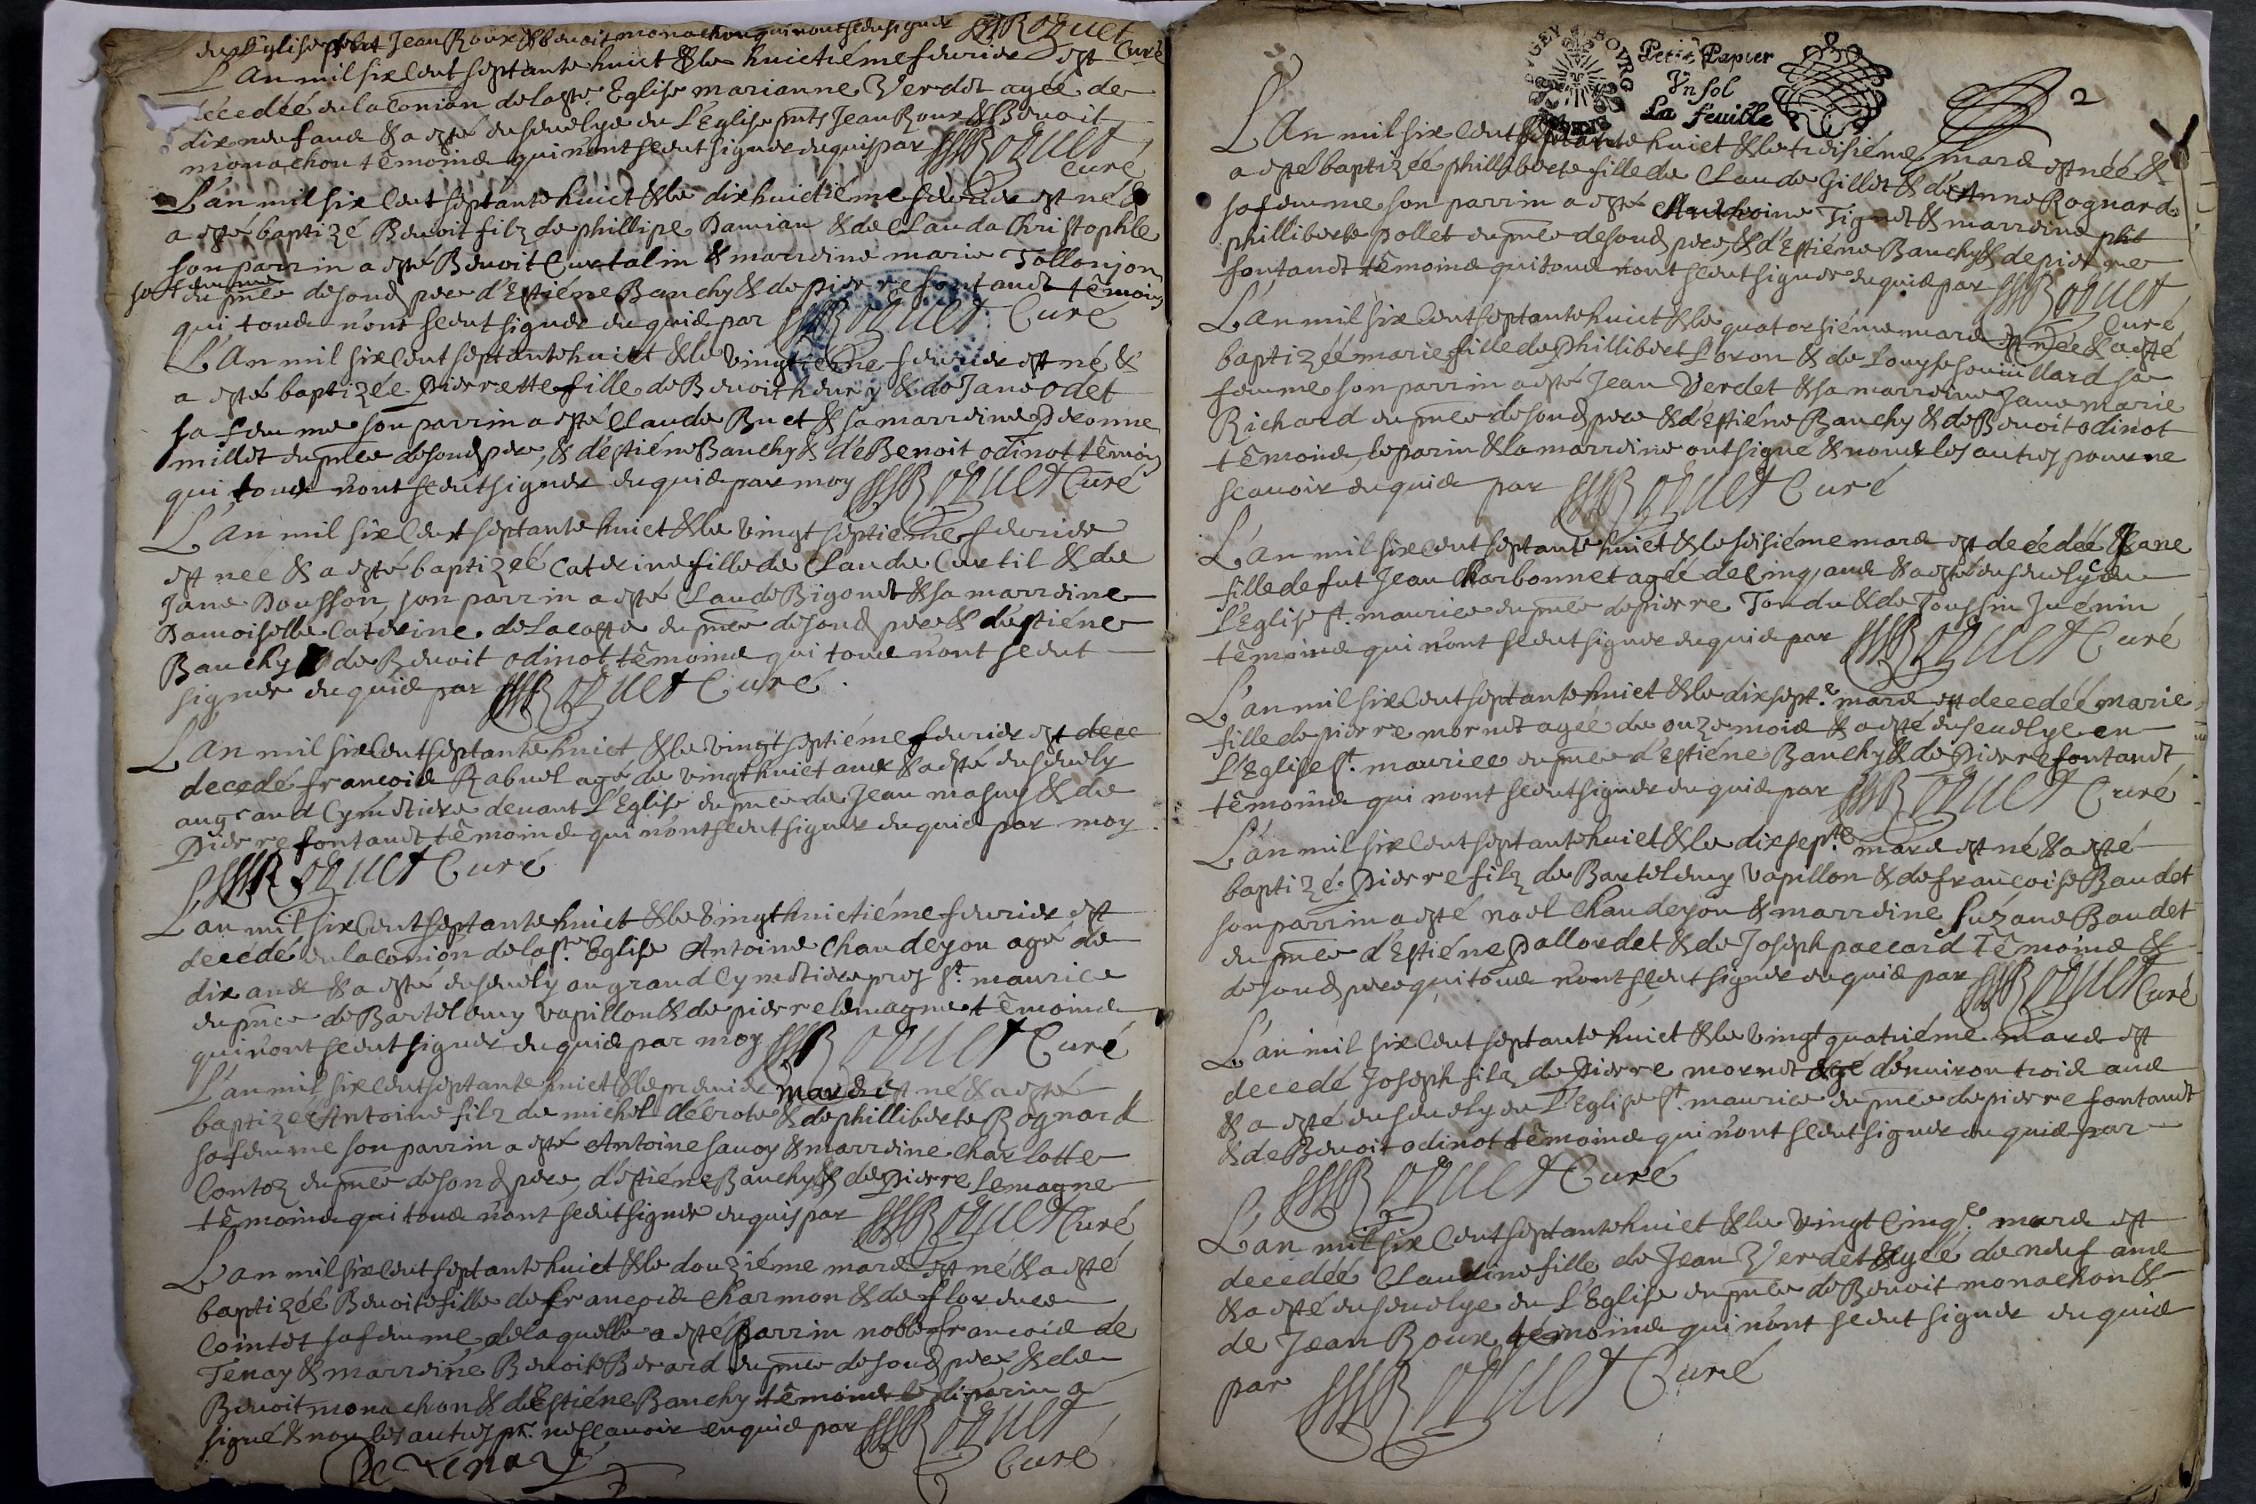 de l'Eglise pnt Jean Roux & Benoit monachon qui nont sceu signer Roquet Curé
L'An mil six cent septante huict & le huictiéme feurier est
decedée en la Comion de la ste Eglise marianne Verdet agée de
dix neuf ans & a esté enseuelye en L'Eglise pnts Jean Roux & Benoit
monachon têmoins qui nont sceut signer enquis par Roquet
Curé
L'an mil six cent septante huict & le dixhuictiéme feurier est né &
a esté baptizé Benoit filz de phillipe Damian & de Clauda Christophle
sa femme
son parrin a esté Benoit Curtalin & marreine marie Tollonjon
en pnce desond pere d'Estiéne Banchy & de pierre fontanet têmoins
qui tous n'ont sceut signer enquis par Roquet Curé
L'An mil six cent septante huict & le vingtiéme feurier est né &
a esté baptizée pierrette fille de Benoit henry & de Jane odet
sa femme son parrin a esté Claude Buet & sa marreine pieronne
millet en pnce desond pere, & d'estiéne Banchy & de Benoit odinot têmoins
qui tous n'ont sceut signer enquis par moy Roquet Curé
L'An mil six cent septante huict & le vingt septiéme feurier
est née & a esté baptizée Caterine fille de Claude Curtil & de
Jane Dousson, son parrin a esté Claude Bigonet & sa marreine
Damoiselle Caterine de Lacoste en pnce desond pere & d'estiéne
Banchy & de Benoit odinot têmoins qui tous n'ont sceut
signer enquis par Roquet Curé
L'An mil six cent septante huict & le vingt septiéme feurier est dece
decedé francois Rabuel agé de vingt huict ans & a esté enseuely
au grand Cymetiere deuant L'Eglise en pnce de Jean masuy & de
pierre fontanet têmoins qui n'ont sceut signer enquis par moy
Roquet Curé
L'an mil six cent septante huict & le vingt huictiéme feurier est
decedé en la comion de la ste Eglise Antoine Chandeyon agé de
dix ans & a esté enseuely au grand Cymetiere pres st. maurice
en pnce de Bartelemy vapillon & de pierre lemagne têmoins
qui n'ont sceut signer enquis par moy Roquet Curé
L'an mil six cent septante huict & le premier mars est né & a esté
baptizé Antoine filz de michel decrote & de phillibete Rognard
sa femme son parrin a esté Antoine sauoy & marreine charlotte
Contoz en pnce desond pere, d'estiéne Banchy & de pierre Lemagne
têmoins qui tous n'ont sceut signer enquis par Roquet Curé
L'an mil six cent septante huict & le douziéme mars est né & a esté
baptizée Benoite fille de francois Charmon & de florence
Cointet sa femme de laquelle a esté parrin noble francois de
Tenay & marreine Benoite Berard en pnce desond pere & de
Benoit monachon & d'Estiéne Banchy têmoins le d. parrin a
signé & non les autres pr. ne scauoir enquis par Roquet
Curé
De Tenay
BOVRG
Petit Papier
Vn sol
La feuille
2
L'An mil six cent septante huict & le troisiéme mars est née &
a esté baptizée phillibete fille de Claude Gillet & de Anne Rognard
sa femme son parrin a esté Anthoine Tignet & marreine phil
phillibete pollet en pnce desond pere, & d'Estiéne Banchy & de pierre
fontanet têmoins qui tous n'ont sceut signer enquis par Roquet
Curé
L'An mil six cent septante huict & le quatorsiéme mars est née & a esté
baptizée marie fille de Phillibert Loron & de Louyse souuillard sa
femme son parrin a esté Jean Verdet & sa marreine Jane marie
Richard en pnce desond pere & d'Estiéne Banchy & de Benoit odinot
têmoins, le parrin & la marreine ont signé & non les autres pour ne
scauoir enquis par Roquet Curé
L'an mil six cent septante huict & le seisiéme mars est decedée Jane
fille de fut Jean Charbonnet agée de cinq ans & a esté enseuelye en
L'Eglise st. maurice en pnce de pierre Tondu & de Toussin Juénin
têmoins qui n'ont sceut signer enquis par Roquet Curé
L'an mil six cent septante huict & le dixsept.e mars est decedée marie
fille de pierre mornet agée de onze mois & a esté enseuelye en
L'Eglise st. maurice en pnce d'Estiéne Banchy & de Pierre fontanet
têmoins qui nont sceut signer enquis par Roquet Curé
L'an mil six cent septante huict & le dixsepte mars est né & a esté
baptizé Pierre filz de Bartelemy vapillon & de francoise Baudet
son parrin a esté noel Chandeyon & marreine suzane Baudet
en pnce d'Estiéne pallordet & de Joseph paccard têmoins &
desond pere qui tous n'ont sceut signer enquis par Roquet
Curé
L'an mil six cent septante huict & le vingt quatriéme mars est
decedé Joseph filz de Pierre mornet agé d'enuiron trois ans
& a esté enseuely en L'Eglise st. maurice en pnce de pierre fontanet
& de Benoit odinot têmoins qui n'ont sceut signer enquis par
Roquet Curé
L'an mil six cent septante huict & le vingt cinq.e mars est
decedée Claudine fille de Jean Verdet agée de neuf ans
& a esté enseuelye en L'Eglise en pnce de Benoit monachon &
de Jean Roux têmoins qui n'ont sceut signer enquis
par Roquet Curé